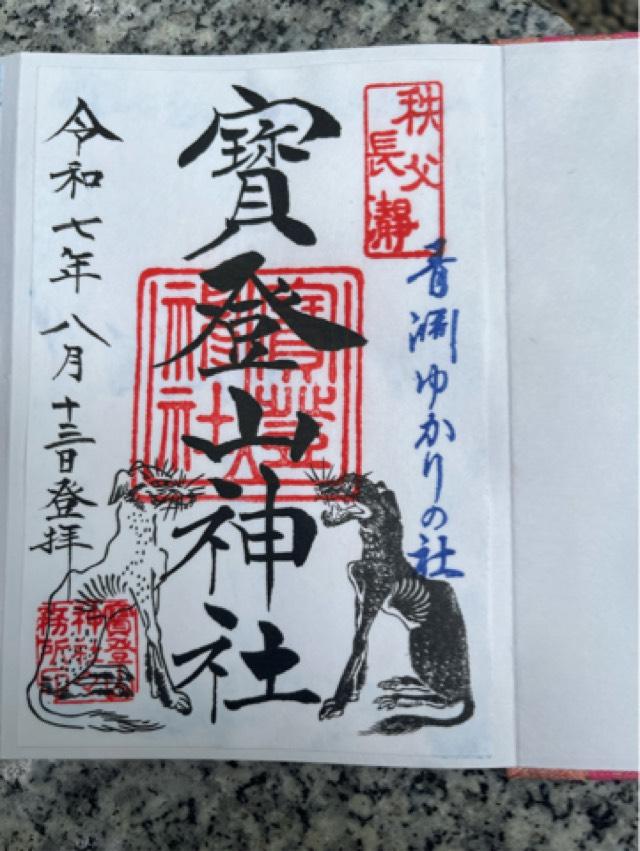 秩父
長瀞
青淵ゆかりの社
寶登山神社
寶登山
神社
令和七年八月十三日登拝
寶登山
神社
務所印